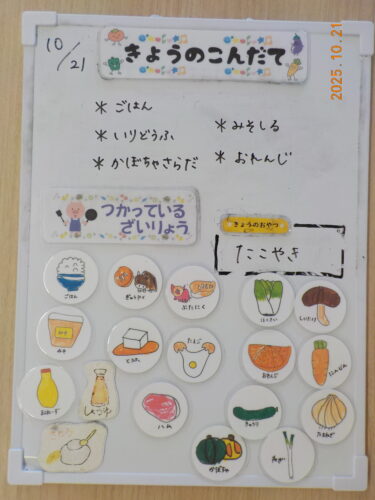 10/21
きょうのこんだて
2025.10.21
＊ ごはん
＊ いりどうふ
＊ かぼちゃさらだ
＊ みそしる
＊ おれんじ
つかっている
ざいりょう
きょうのおやつ
たこやき
ごはん
ぎゅうにく
ぶたにく
はくさい
しいたけ
みそ
とうふ
たまご
おれんじ
にんじん
まよねーず
しょうゆ
はむ
きゅうり
たまねぎ
さとう
かぼちゃ
ねぎ